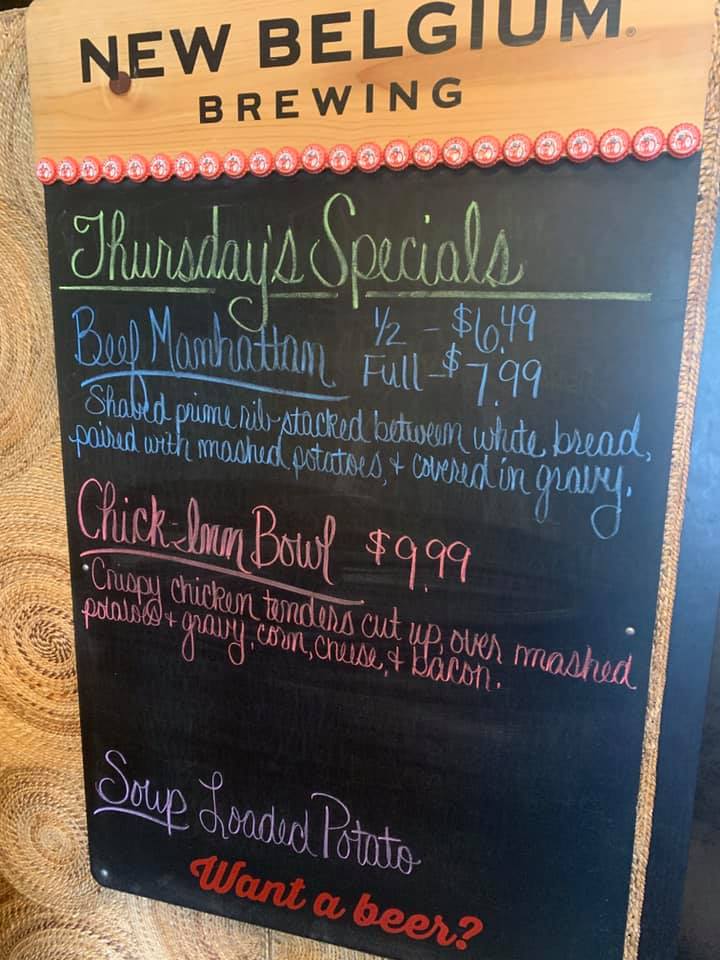 NEW BELGIUM®
BREWING
Thursday's Specials
Beef Manhattan 1/2 - $6.49
Full - $7.99
Shaved prime rib stacked between white bread,
paired with mashed potatoes, + covered in gravy.
Chick-Inn Bowl $9.99
Crispy chicken tenders cut up, over mashed
potatoes + gravy, corn, cheese, + bacon.
Soup Loaded Potato
Want a beer?